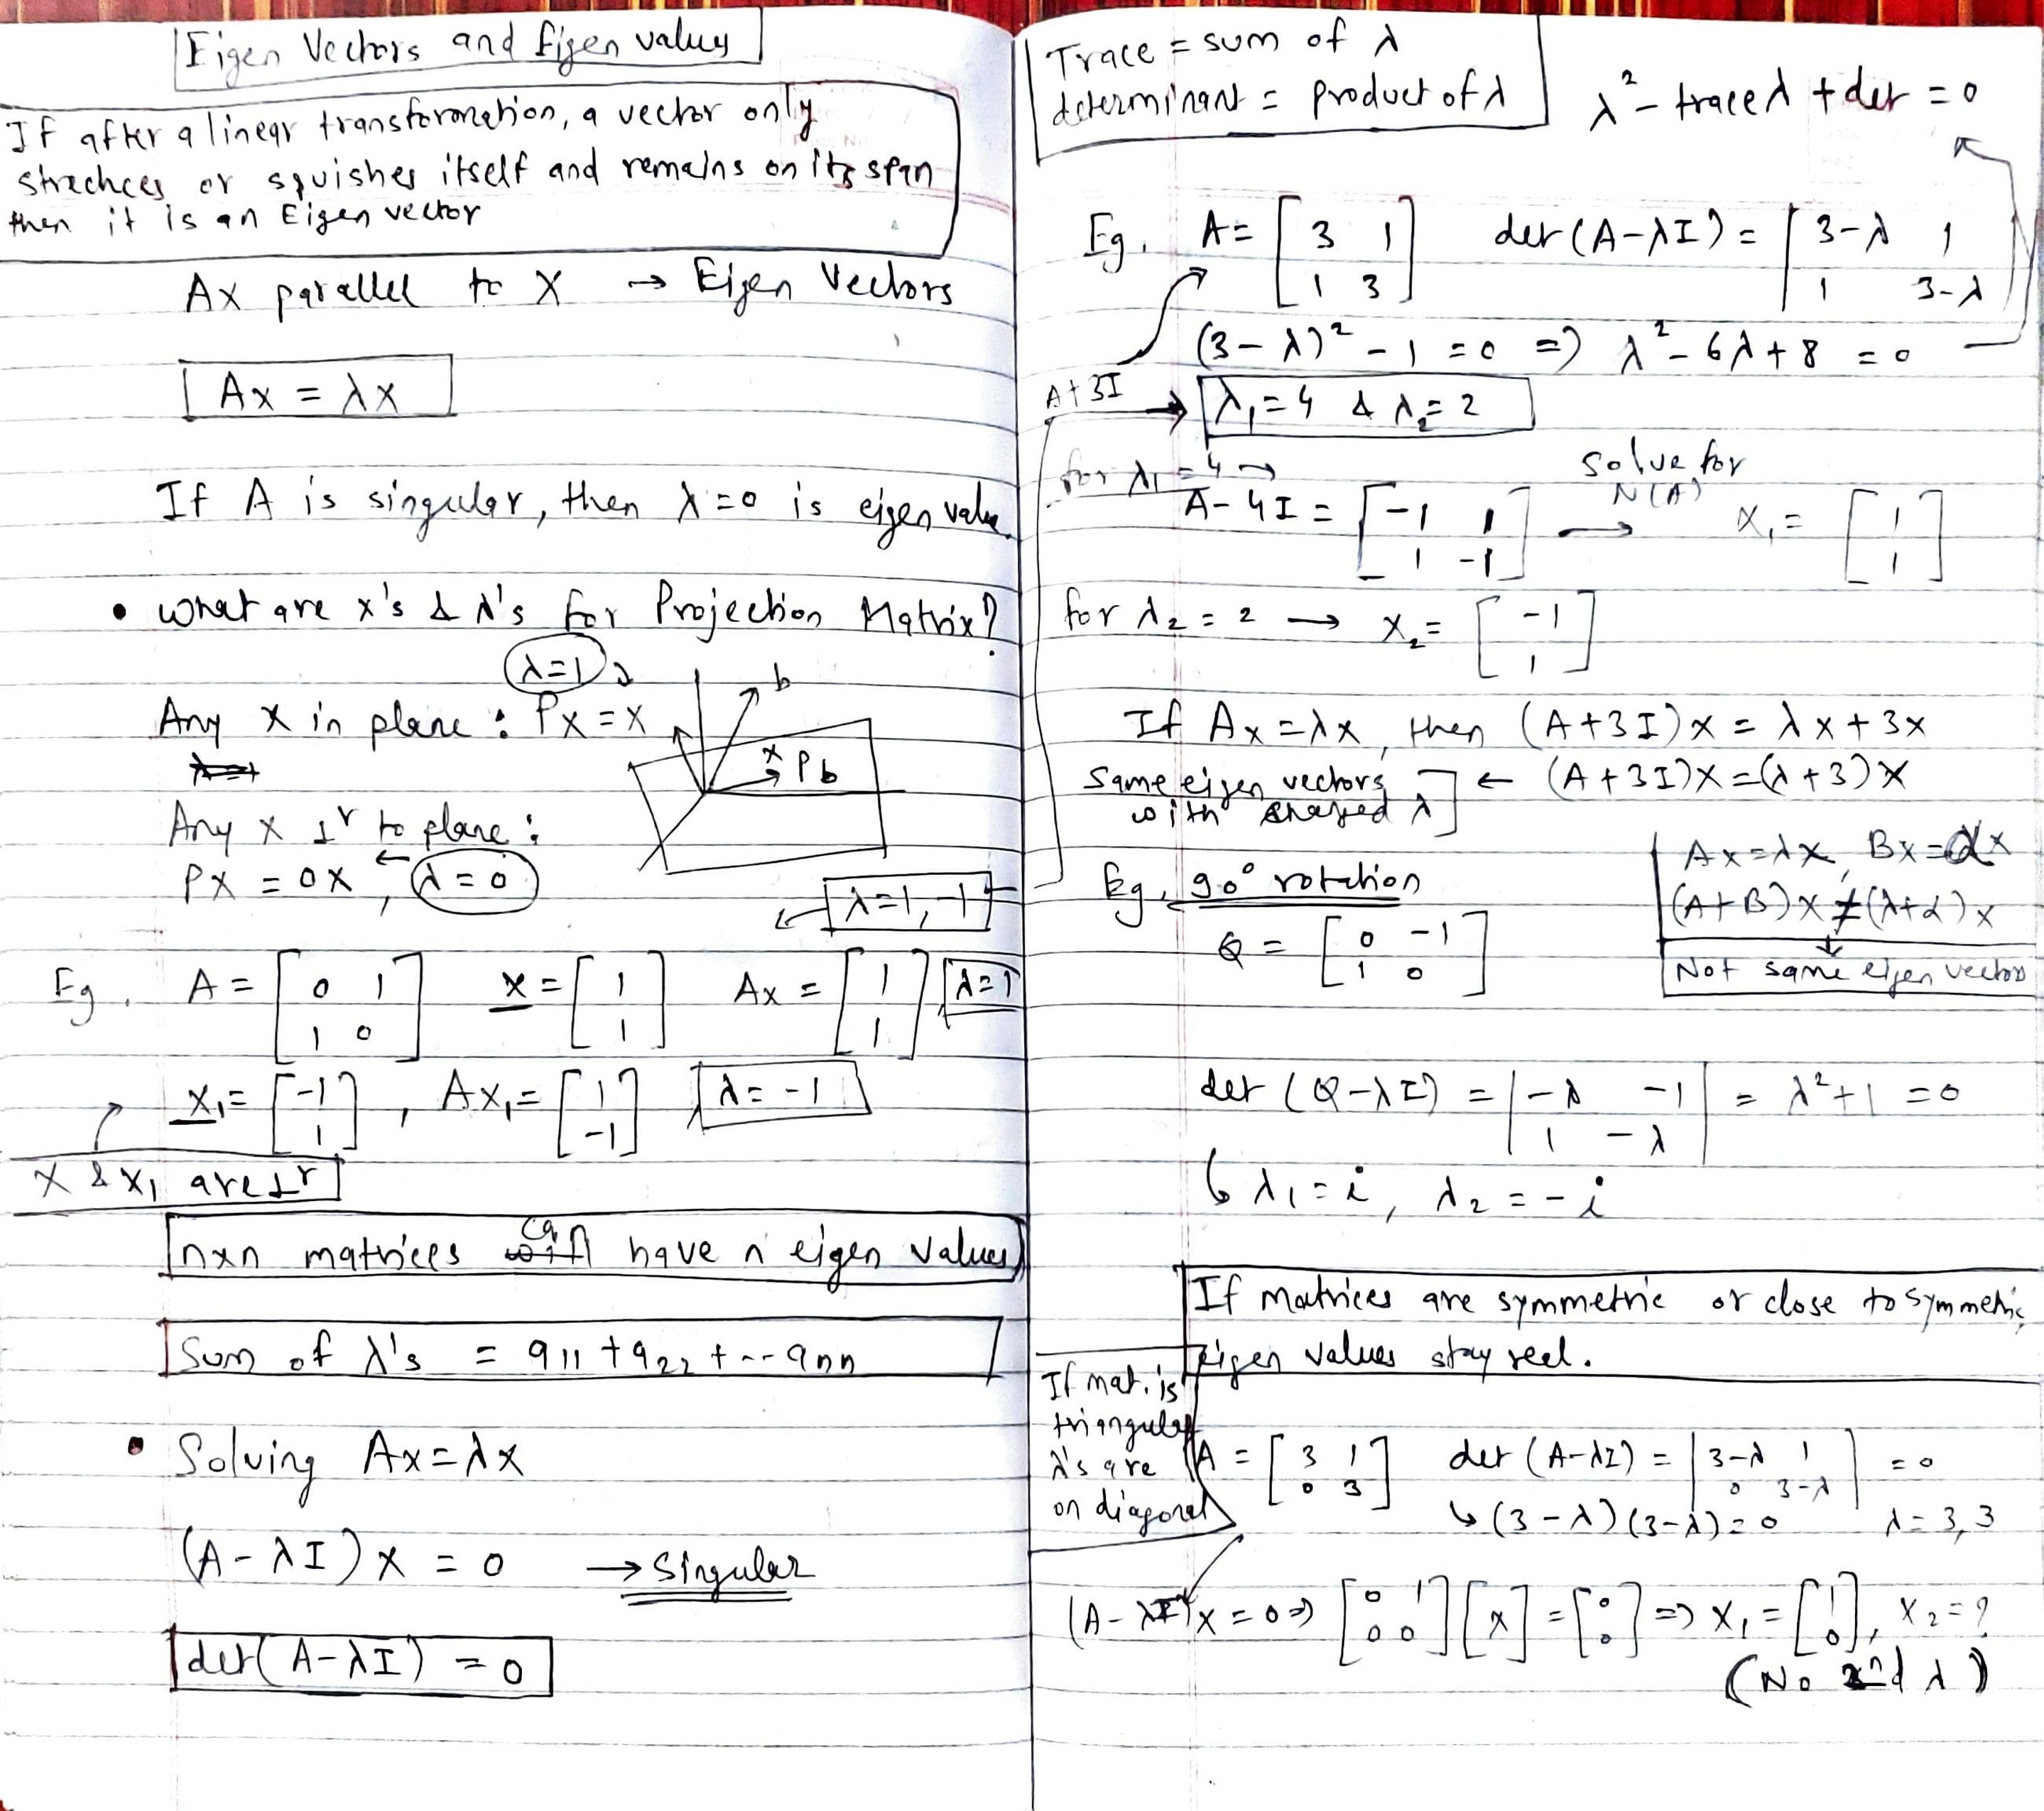 Eigen Vectors and Eigen values
If after a linear transformation, a vector only
strechces or squishes itself and remains on its span
then it is an Eigen vector
Ax parallel to X → Eigen Vectors
Ax = λx
If A is singular, then λ=0 is eigen value.
• what are x's & λ's for Projection Matrix?
λ=1
Any x in plane : Px = x
b
x Pb
Any x ⊥r to plane :
Px = 0x , λ = 0
λ=1, -1
Eg. A = [0 1
1 0] x = [1
1] Ax = [1
1] λ=1
x₁ = [-1
1] , Ax₁ = [1
-1] λ = -1
x & x₁ are ⊥r
nxn matrices can have n eigen values
Sum of λ's = a11 + a22 + -- ann
• Solving Ax = λx
(A - λI) x = 0 → Singular
det(A - λI) = 0
Trace = sum of λ
determinant = product of λ
λ² - trace λ + det = 0
Eg. A = [3 1
1 3] det(A-λI) = |3-λ 1
1 3-λ|
(3-λ)² - 1 = 0 ⇒ λ² - 6λ + 8 = 0
A+3I
λ₁=4 & λ₂=2
for λ₁ = 4 →
A - 4I = [-1 1
1 -1] → solve for
N(A)
x₁ = [1
1]
for λ₂ = 2 → x₂ = [-1
1]
If Ax = λx, then (A+3I)x = λx + 3x
Same eigen vectors ← (A+3I)x = (λ+3)x
with λ
Ax = λx, Bx = αx
(A+B)x ≠ (λ+α)x
Not same eigen vectors
Eg. 90° rotation
Q = [0 -1
1 0]
det (Q-λI) = |-λ -1
1 -λ| = λ²+1 = 0
↳ λ₁ = i, λ₂ = -i
If matrices are symmetric or close to symmetric,
eigen values stay real.
If mat. is
triangular
λ's are
on diagonal
A = [3 1
0 3] det (A-λI) = |3-λ 1
0 3-λ| = 0
↳ (3-λ)(3-λ) = 0 λ = 3, 3
(A-λI)x = 0 ⇒ [0 1
0 0] [x] = [0
0] ⇒ x₁ = [1
0], x₂ = ?
(No 2nd λ)